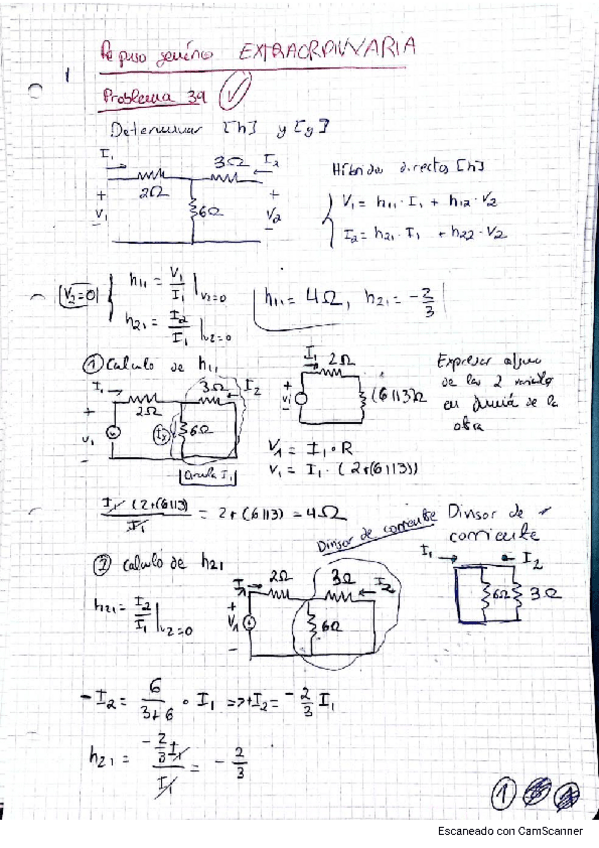 Repaso genérico EXTRAORDINARIA
1
Problema 39
Determinar [h] y [g]
I₁ 3Ω I₂
2Ω
+ V₁ - 6Ω + V₂ -
Híbridos directos [h]
V₁ = h₁₁ · I₁ + h₁₂ · V₂
I₂ = h₂₁ · I₁ + h₂₂ · V₂
V₂=0
h₁₁ = V₁/I₁ |V₂=0
h₂₁ = I₂/I₁ |V₂=0
h₁₁ = 4Ω, h₂₁ = -2/3
① Calculo de h₁₁
I₁ 3Ω I₂
2Ω
+ V₁ - 6Ω
I₁ 2Ω
+ V₁ - (6||3)Ω
Expresar alguna
de las 2 
en función de la
otra
V₁ = I₁ · R
V₁ = I₁ · (2+(6||3))
I₁ · (2+(6||3))/I₁ = 2+(6||3) = 4Ω
Divisor de corriente
Divisor de
corriente
② Calculo de h₂₁
h₂₁ = I₂/I₁ |V₂=0
I₁ 2Ω 3Ω I₂
+ V₁ - 6Ω
I₁ I₂
6Ω 3Ω
-I₂ = 6/(3+6) · I₁ => +I₂ = -2/3 I₁
h₂₁ = (-2/3 I₁)/I₁ = -2/3
①
Escaneado con CamScanner